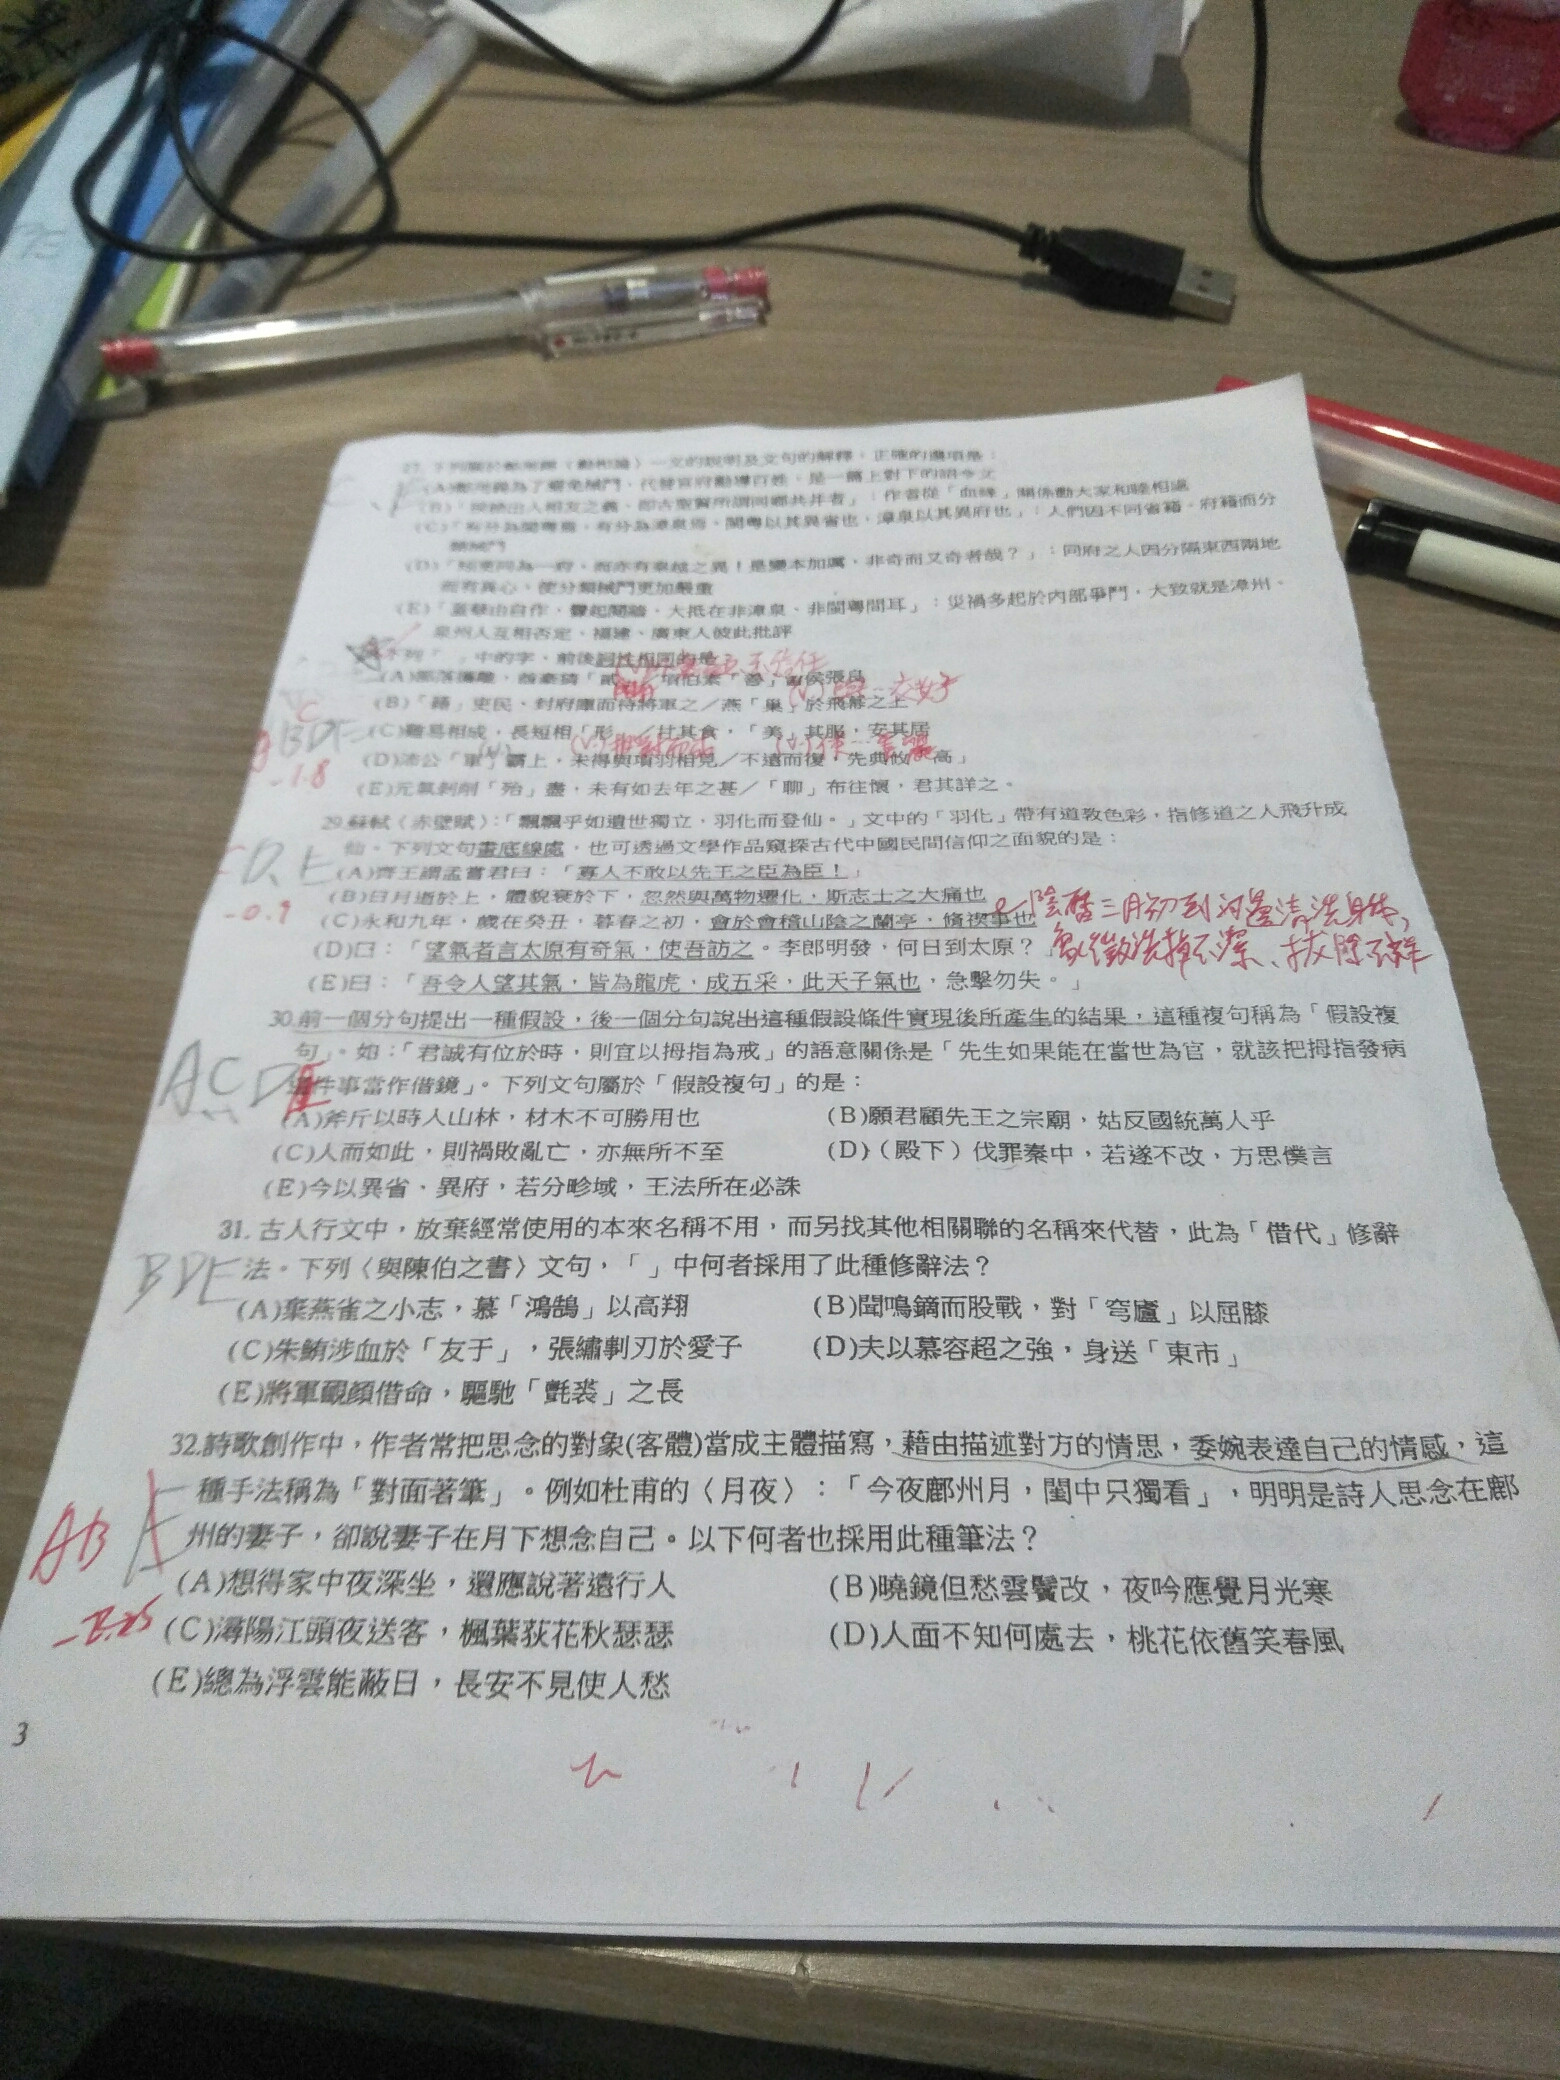 27.下列關於鄭用錫〈勸和論〉一文的說明及文句的解釋,正確的選項是:
(A)鄭用錫為了避免械鬥,代替官府勸導百姓,是一篇上對下的詔令文
出入相友之義,即古聖賢所謂同鄉共井者」:作者從「血緣」關係勸大家和睦相處
(C)「有分為閩粵焉,有分為漳泉焉,閩粵以其異省也,漳泉以其異府也」:人們因不同省籍、府籍而分
類械鬥
同為一府,而亦有秦越之異!是變本加厲,非奇而又奇者哉?」:同府之人因分隔東西兩地
而有異心,使分類械鬥更加嚴重
(E)「蓋孽由自作,釁起鬩牆,大抵在非漳泉、非閩粵間耳」:災禍多起於內部爭鬥,大致就是漳州、
泉州人互相否定,福建、廣東人彼此批評
下列「 」中的字,前後詞性相同的是
(A)部落攜離,酋豪猜「貳」/項伯素「善」留侯張良
(B)「籍」吏民,封府庫而待將軍之/燕「巢」於飛幕之上
(C)難易相成,長短相「形」/甘其食,「美」其服,安其居
(D)沛公「軍」霸上,未得與項羽相見/不遠而復,先典攸「高」
(E)元氣剝削「殆」盡,未有如去年之甚/「聊」布往懷,君其詳之。
ABDE
C
-1.8
29.蘇軾〈赤壁賦〉:「飄飄乎如遺世獨立,羽化而登仙。」文中的「羽化」帶有道教色彩,指修道之人飛升成
仙。下列文句畫底線處,也可透過文學作品窺探古代中國民間信仰之面貌的是:
C D、E
-0.9
(A)齊王謂孟嘗君曰:「寡人不敢以先王之臣為臣!」
(B)日月逝於上,體貌衰於下,忽然與萬物遷化,斯志士之大痛也
(C)永和九年,歲在癸丑,暮春之初,會於會稽山陰之蘭亭,脩禊事也
陰曆三月初到河邊清洗身體,
象徵洗掉不潔、拔除不祥
(D)曰:「望氣者言太原有奇氣,使吾訪之。李郎明發,何日到太原?」
(E)曰:「吾令人望其氣,皆為龍虎,成五采,此天子氣也,急擊勿失。」
30.前一個分句提出一種假設,後一個分句說出這種假設條件實現後所產生的結果,這種複句稱為「假設複
句」。如:「君誠有位於時,則宜以拇指為戒」的語意關係是「先生如果能在當世為官,就該把拇指發病
這件事當作借鏡」。下列文句屬於「假設複句」的是:
ACDE
(A)斧斤以時入山林,材木不可勝用也
(B)願君顧先王之宗廟,姑反國統萬人乎
(C)人而如此,則禍敗亂亡,亦無所不至
(D)(殿下)伐罪秦中,若遂不改,方思僕言
(E)今以異省、異府,若分畛域,王法所在必誅
31.古人行文中,放棄經常使用的本來名稱不用,而另找其他相關聯的名稱來代替,此為「借代」修辭
法。下列〈與陳伯之書〉文句,「」中何者採用了此種修辭法?
BDE
(A)棄燕雀之小志,慕「鴻鵠」以高翔
(B)聞鳴鏑而股戰,對「穹廬」以屈膝
(C)朱鮪涉血於「友于」,張繡剚刃於愛子
(D)夫以慕容超之強,身送「東市」
(E)將軍靦顏借命,驅馳「氈裘」之長
32.詩歌創作中,作者常把思念的對象(客體)當成主體描寫,藉由描述對方的情思,委婉表達自己的情感,這
種手法稱為「對面著筆」。例如杜甫的〈月夜〉:「今夜鄜州月,閨中只獨看」,明明是詩人思念在鄜
州的妻子,卻說妻子在月下想念自己。以下何者也採用此種筆法?
AB
(A)想得家中夜深坐,還應說著遠行人
(B)曉鏡但愁雲鬢改,夜吟應覺月光寒
(C)潯陽江頭夜送客,楓葉荻花秋瑟瑟
(D)人面不知何處去,桃花依舊笑春風
(E)總為浮雲能蔽日,長安不見使人愁
3